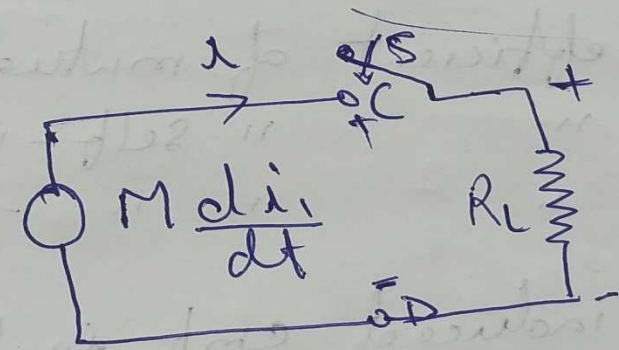 i
S
C
+
+
M di₁/dt
R_L
-
D
-